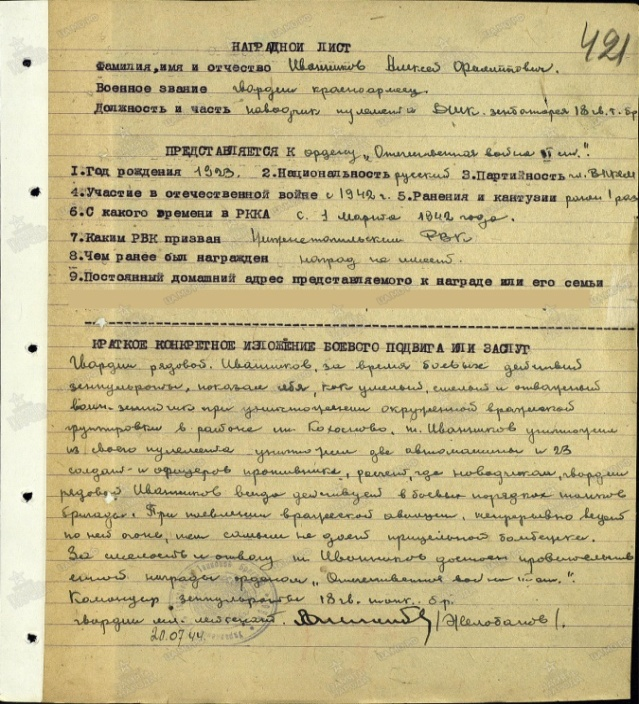 421
НАГРАДНОЙ ЛИСТ
Фамилия,имя и отчество Иванников Алексей Филиппович.
Военное звание гвардии красноармеец.
Должность и часть наводчик пулемета ДШК. 18 гв. т. бр
ПРЕДСТАВЛЯЕТСЯ К ордену „Отечественная война II ст.".
1.Год рождения 1923. 2.Национальность русский 3.Партийность чл. ВЛКСМ
4.Участие в отечественной войне с 1942 г. 5.Ранения и кантузии ранен 1 раз
6.С какого времени в РККА с 1 Марта 1942 года.
7.Каким РВК призван РВК
8.Чем ранее был награжден наград не имеет.
9.Постоянный домашний адрес представляемого к награде или его семьи
КРАТКОЕ КОНКРЕТНОЕ ИЗЛОЖЕНИЕ БОЕВОГО ПОДВИГА ИЛИ ЗАСЛУГ
Гвардии рядовой Иванников, за время боевых действий
зенпульроты, показал себя, как умелый, смелый и отважный
воин-зенитчик при уничтожении окруженной вражеской
группировки в районе т. Иванников уничтожил
из своего пулемета две автомашины и 23
солдат и офицеров противника, расчет, где наводчиком, гвардии
рядовой Иванников всегда действует в боевых порядках танков
бригады. При появлении вражеской авиации, непрерывно ведет
по ней огонь, тем самым не дает прицельной бомбежки.
За смелость и отвагу т. Иванников достоин правительств
енной награды орденом „Отечественная война II ст.".
Командир зенпульроты 18 гв. танк. бр.
гвардии мл. лейтенант. /Желобанов/.
20.07.44